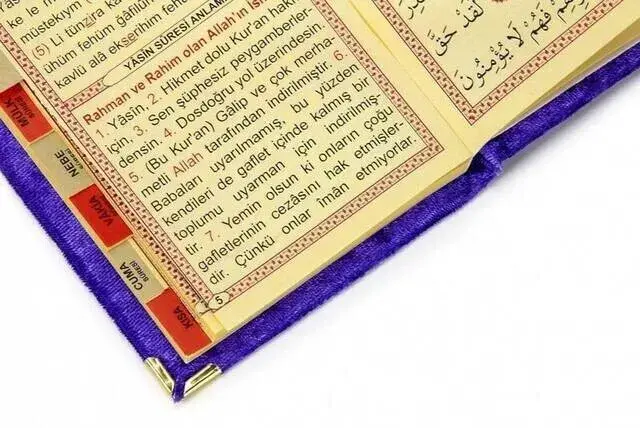 ke le m
müstekıym (
(5) Li tünzira ka
ühüm fehüm ğâfilûn
kavlü alâ ekserihim fehüm
YASİN SÛRESİ ANLAM
Rahman ve Rahim olan Allah'ın is
1. Yâsîn, 2. Hikmet dolu Kur'an hakkı
için, 3. Sen şüphesiz peygamberler
densin. 4. Dosdoğru yol üzerindesin.
5. (Bu Kur'an) Gâlip ve çok merha-
metli Allah tarafından indirilmiştir. 6.
Babaları uyarılmamış, bu yüzden
kendileri de gaflet içinde kalmış bir
toplumu uyarman için indirilmiş-
tir. 7. Yemin olsun ki onların çoğu
gafletlerinin cezâsını hak etmişler-
dir. Çünkü onlar îmân etmiyorlar.
5
لَقَدْ حَقَّ
فَهُمْ لَا يُؤْمِنُونَ
MÜLK
SÛRESİ
NEBE
VAKIA
CUMA
SÛRESİ
KISA